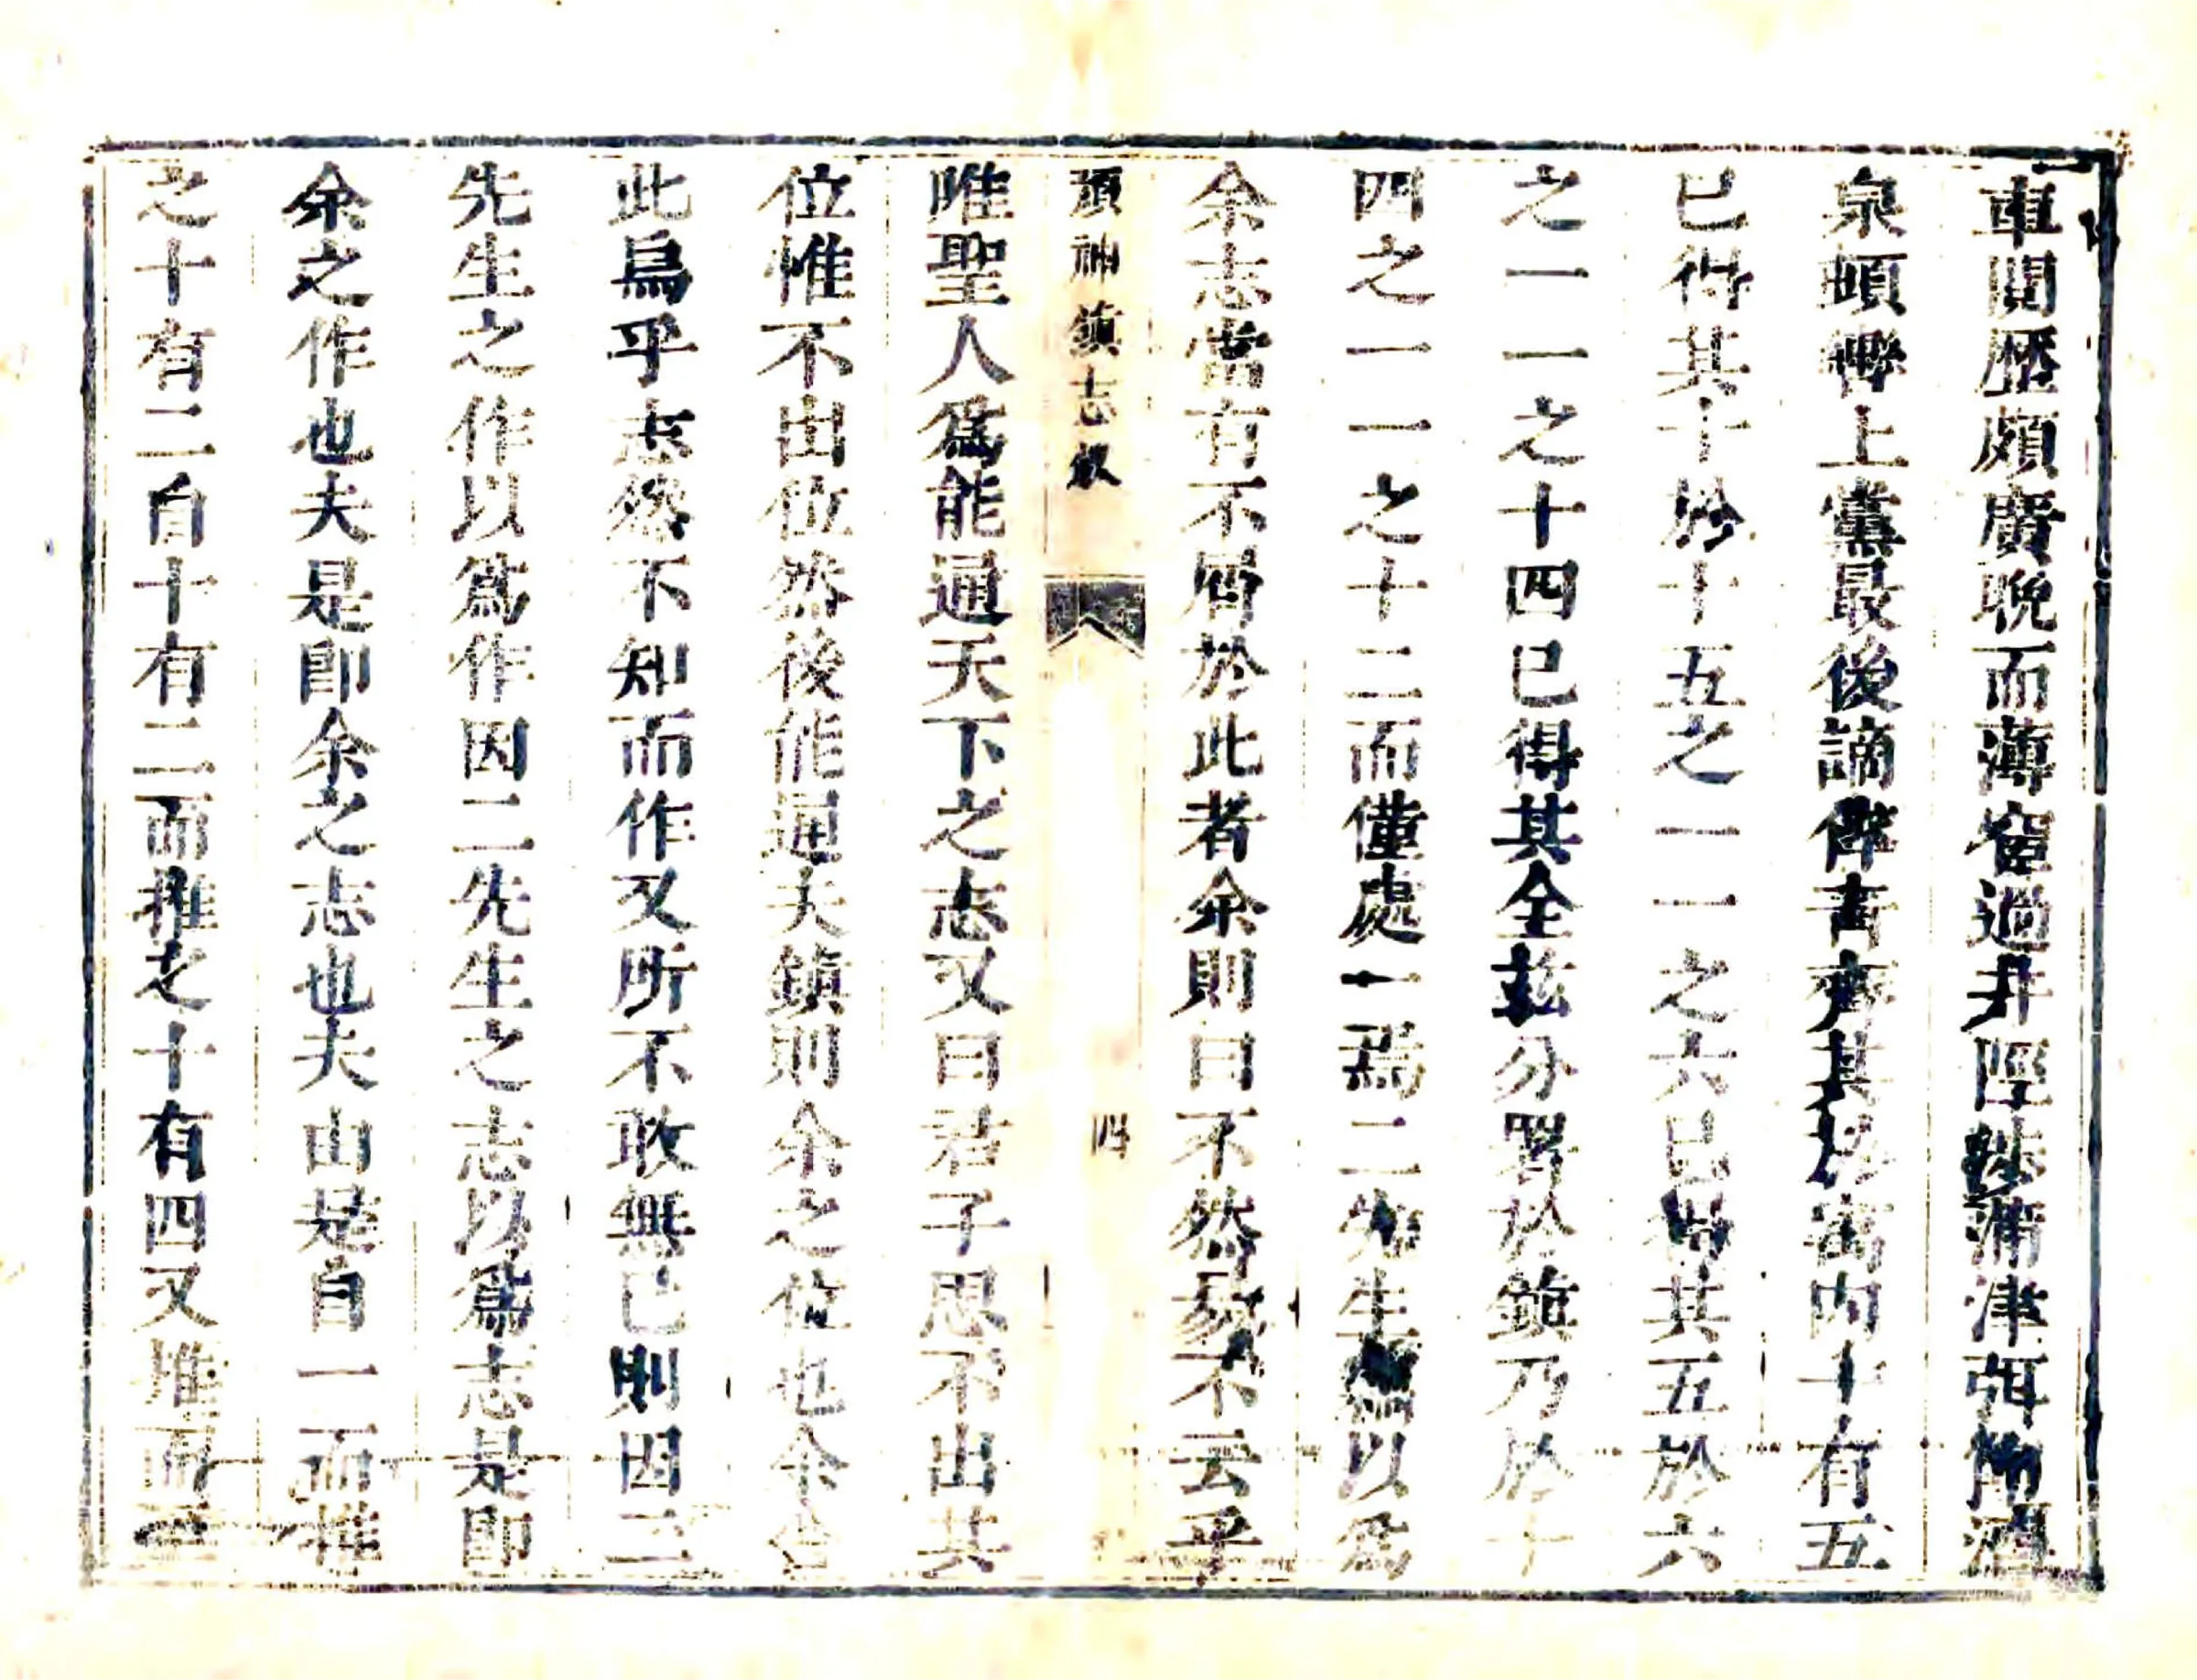 車閒歷頗廣晚而薄宦過井陘涉蒲津弭節酒
泉頓轡上黨最後謫倅青齊其於寓內十有五
已得其十於十五之一一之六已得其五於六
之一一之十四已得其全茲分署於鎮乃於十
四之一一之十二而僅處一焉二先生以爲
余志當有不屑於此者余則曰不然易不云乎
顏神鎮志敘
四
唯聖人爲能通天下之志又曰君子思不出其
位惟不出位然後能通夫鎮則余之位也余舍
此烏乎志然不知而作又所不敢無已則因二
先生之作以爲作因二先生之志以爲志是即
余之作也夫是即余之志也夫由是自一而推
之十有二自十有二而推之十有四又推而至